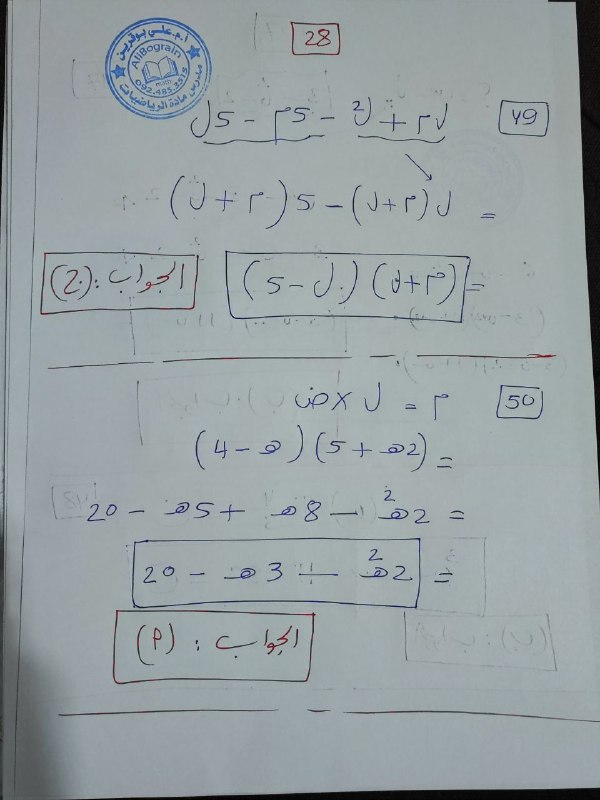 28
أ.م.علي بوقرين
AliBograin
math
092.485.2515
مدرس مادة الرياضيات
49
ل م + ل² - 5م - 5ل
= ل(م + ل) - 5(م + ل)
= (م + ل)(ل - 5)
الجواب: (ج)
50
م = ل × ض
= (2هـ + 5)(هـ - 4)
= 2هـ² - 8هـ + 5هـ - 20
= 2هـ² - 3هـ - 20
الجواب: (أ)